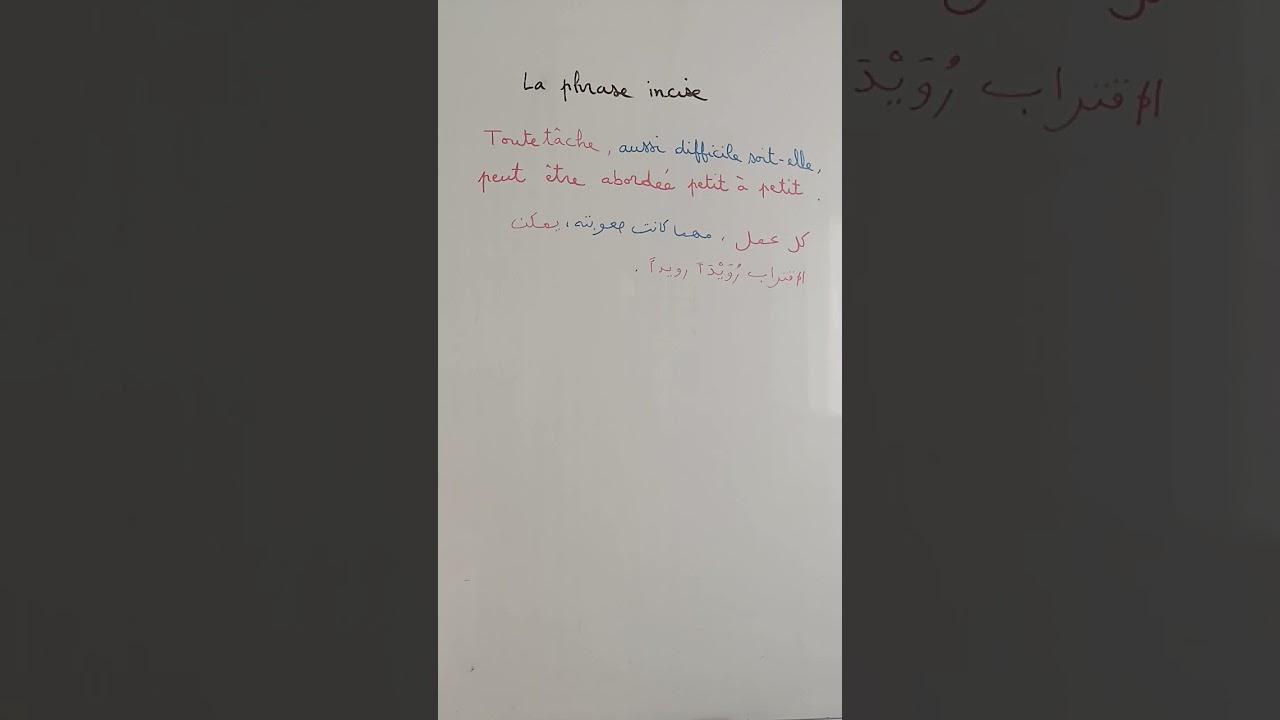 La phrase incise
Toute tâche, aussi difficile soit-elle,
peut être abordée petit à petit.
كل عمل، مهما كانت صعوبته، يمكن
الاقتراب رُوَيْدَاً رويداً.